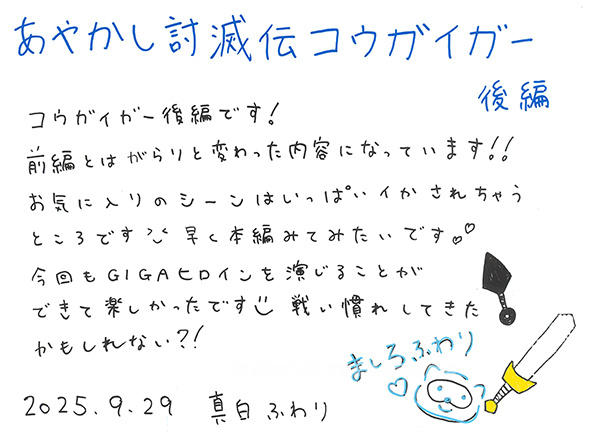 あやかし討滅伝コウガイガー
後編
コウガイガー後編です!
前編とはがらりと変わった内容になっています!!
お気に入りのシーンはいっぱいイかされちゃう
ところです 早く本編みてみたいです♡♡
今回もGIGAヒロインを演じることが
できて楽しかったです 戦い慣れしてきた
かもしれない?!
ましろふわり
♡
2025.9.29 真白ふわり